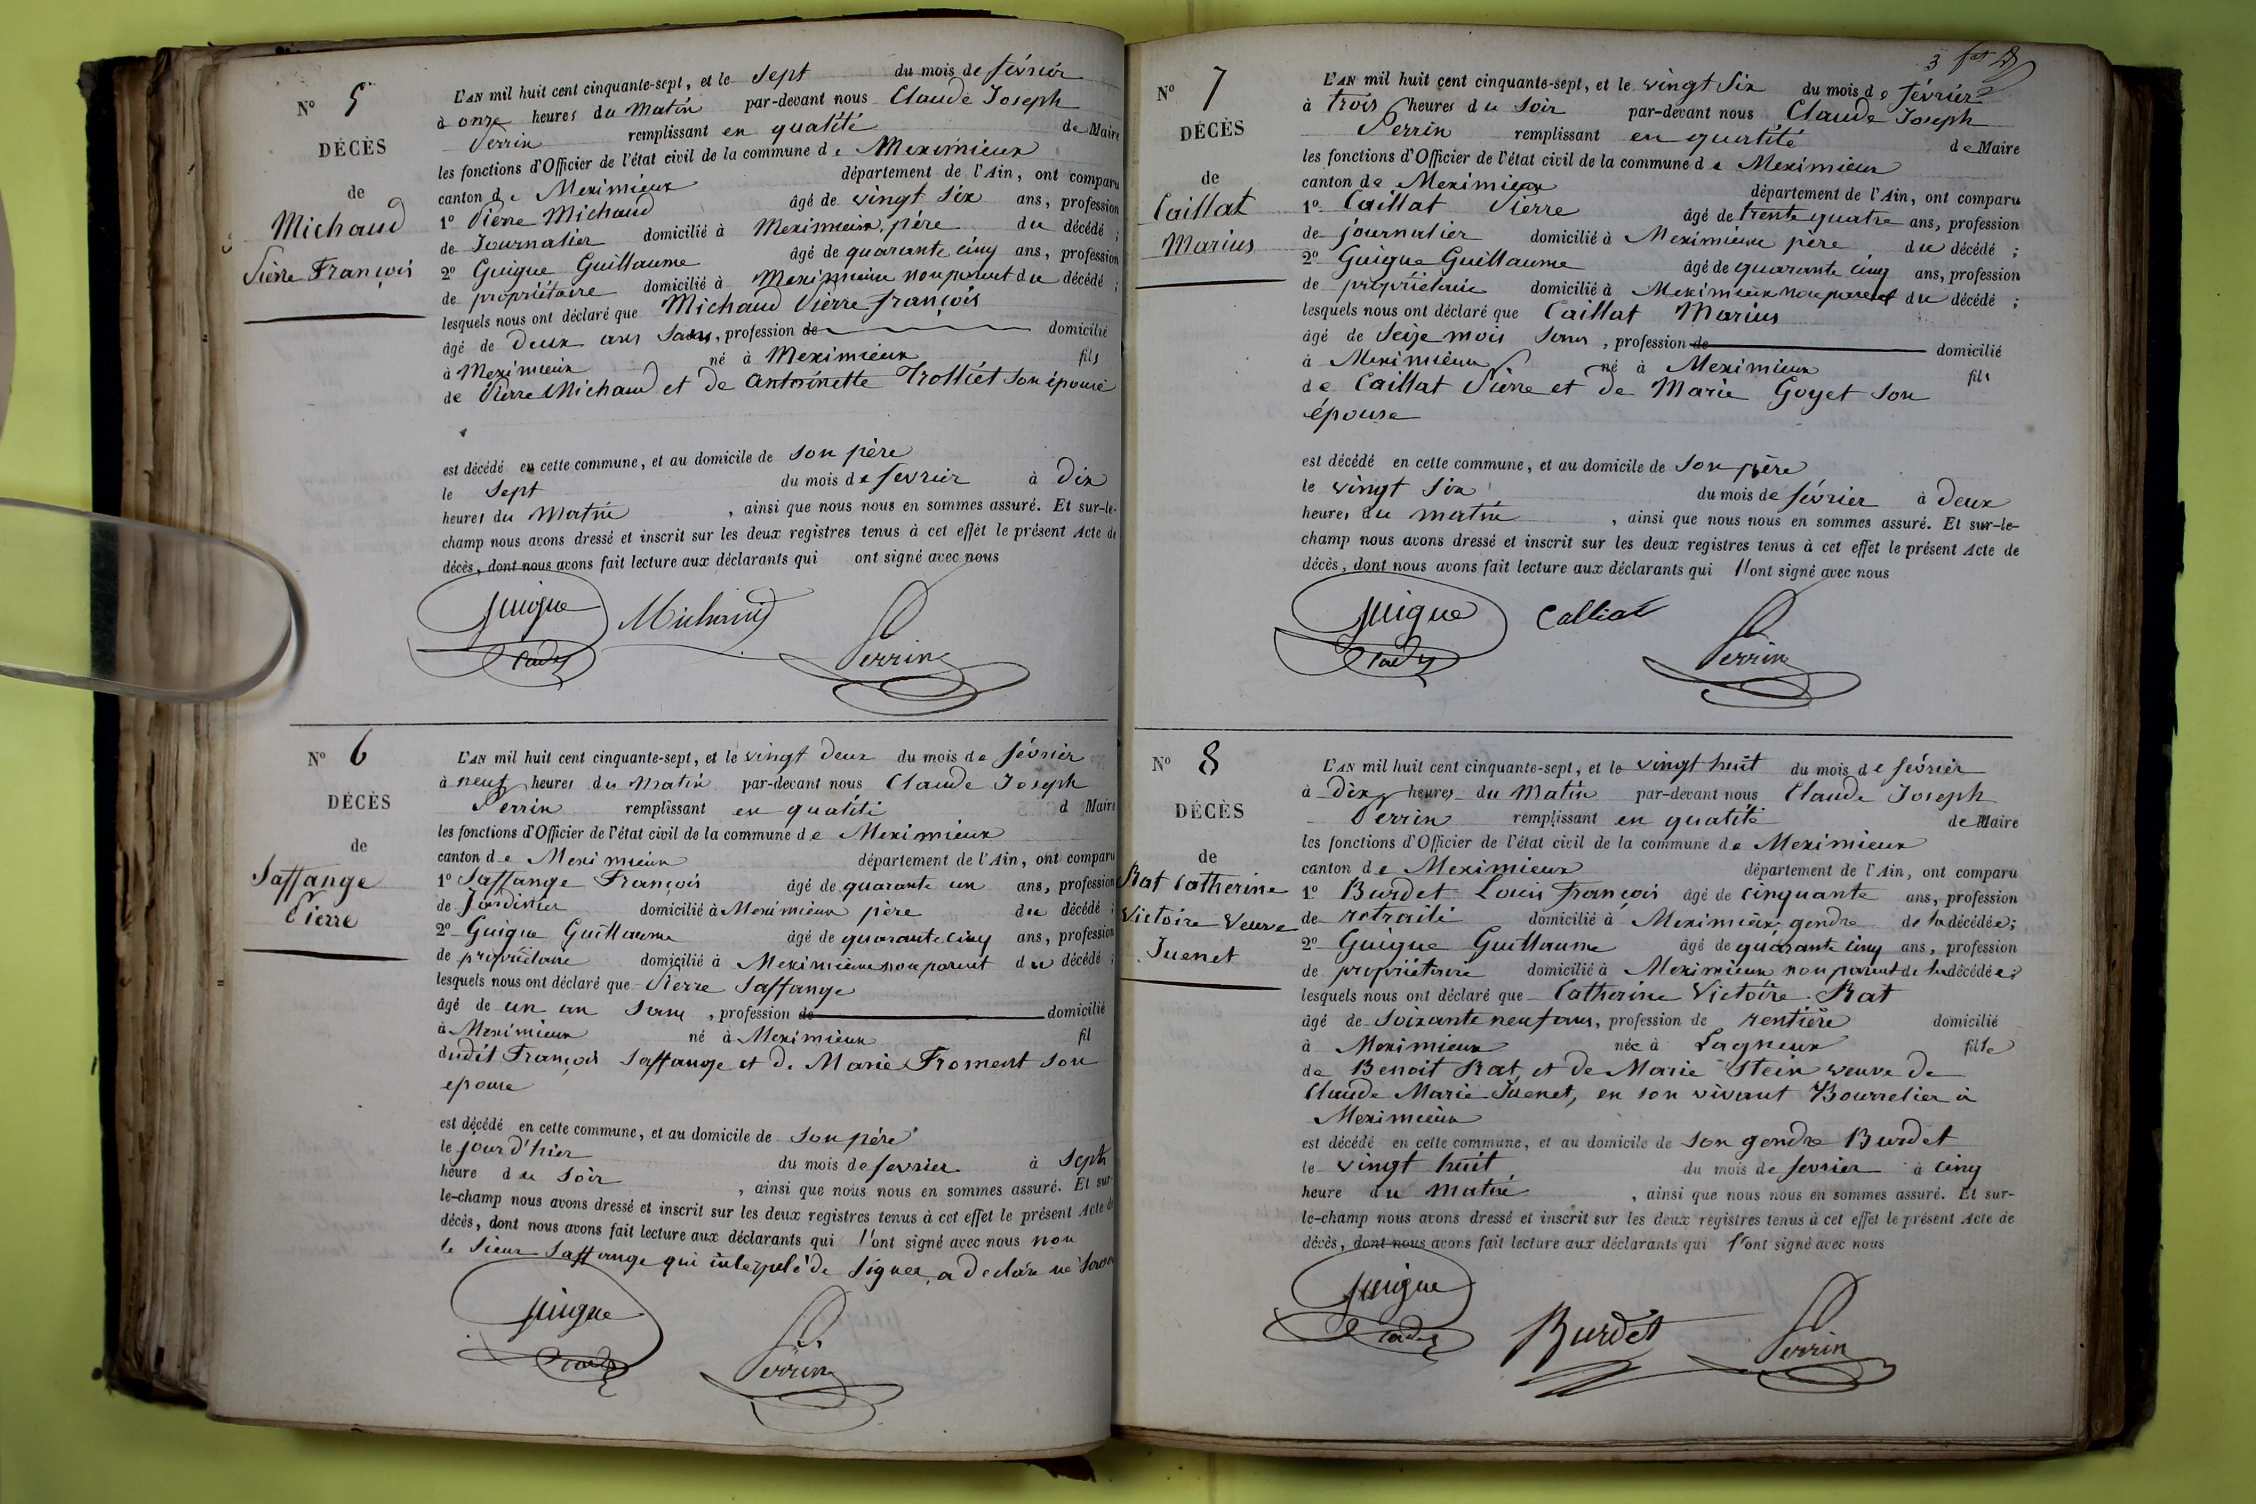 N° 5
DÉCÈS
de
Michaud
Pierre François
L'AN mil huit cent cinquante-sept, et le sept du mois de février
à onze heures du Matin par-devant nous Claude Joseph
Perrin remplissant en qualité de Maire
les fonctions d'Officier de l'état civil de la commune de Meximieux
canton de Meximieux département de l'Ain, ont comparu
1° Pierre Michaud âgé de vingt six ans, profession
de Journalier domicilié à Meximieux, père du décédé ;
2° Guigue Guillaume âgé de quarante cinq ans, profession
de propriétaire domicilié à Meximieux non parent du décédé ;
lesquels nous ont déclaré que Michaud Pierre françois
âgé de Deux ans , profession de domicilié
à Meximieux né à Meximieux fils
de Pierre Michaud et de antoinette Trolliet son épouse
est décédé en cette commune, et au domicile de son père
le sept du mois de fevrier à Dix
heures du Matin , ainsi que nous nous en sommes assuré. Et sur-le-
champ nous avons dressé et inscrit sur les deux registres tenus à cet effet le présent Acte de
décès, dont nous avons fait lecture aux déclarants qui ont signé avec nous
Guigue Michaud
Perrin
N° 6
DÉCÈS
de
Saffange
Pierre
L'AN mil huit cent cinquante-sept, et le vingt deux du mois de février
à neuf heures du Matin par-devant nous Claude Joseph
Perrin remplissant en qualité d Maire
les fonctions d'Officier de l'état civil de la commune de Meximieux
canton de Meximieux département de l'Ain, ont comparu
1° Saffange François âgé de quarante un ans, profession
de Jardinier domicilié à Meximieux père du décédé ;
2° Guigue Guillaume âgé de quarante cinq ans, profession
de propriétaire domicilié à Meximieux non parent du décédé ;
lesquels nous ont déclaré que Pierre Saffange
âgé de un an , profession de domicilié
à Meximieux né à Meximieux fil
dudit François Saffange et de Marie Froment son
epouse
est décédé en cette commune, et au domicile de son père
le jour d'hier du mois de fevrier à Sept
heure du Soir , ainsi que nous nous en sommes assuré. Et sur-
le-champ nous avons dressé et inscrit sur les deux registres tenus à cet effet le présent Acte de
décès, dont nous avons fait lecture aux déclarants qui l'ont signé avec nous non
le Sieur Saffange qui interpelé de signer, a déclaré ne
Guigue
Perrin
3
N° 7
DÉCÈS
de
Caillat
Marius
L'AN mil huit cent cinquante-sept, et le vingt six du mois de février
à trois heures du soir par-devant nous Claude Joseph
Perrin remplissant en qualité de Maire
les fonctions d'Officier de l'état civil de la commune de Meximieux
canton de Meximieux département de l'Ain, ont comparu
1° Caillat Pierre âgé de trente quatre ans, profession
de journalier domicilié à Meximieux père du décédé ;
2° Guigue Guillaume âgé de quarante cinq ans, profession
de propriétaire domicilié à Meximieux non parent du décédé ;
lesquels nous ont déclaré que Caillat Marius
âgé de seize mois , profession de domicilié
à Meximieux né à Meximieux fils
de Caillat Pierre et de Marie Goyet son
épouse
est décédé en cette commune, et au domicile de son père
le vingt six du mois de février à deux
heures du matin , ainsi que nous nous en sommes assuré. Et sur-le-
champ nous avons dressé et inscrit sur les deux registres tenus à cet effet le présent Acte de
décès, dont nous avons fait lecture aux déclarants qui l'ont signé avec nous
Guigue Calliat
Perrin
N° 8
DÉCÈS
de
Rat Catherine
Victoire Veuve
Juenet
L'AN mil huit cent cinquante-sept, et le vingt huit du mois de février
à Dix heures du Matin par-devant nous Claude Joseph
Perrin remplissant en qualité de Maire
les fonctions d'Officier de l'état civil de la commune de Meximieux
canton de Meximieux département de l'Ain, ont comparu
1° Burdet Louis François âgé de cinquante ans, profession
de retraité domicilié à Meximieux gendre de la décédée ;
2° Guigue Guillaume âgé de quarante cinq ans, profession
de propriétaire domicilié à Meximieux non parent de la décédée ;
lesquels nous ont déclaré que Catherine Victoire Rat
âgé de soixante neuf ans, profession de rentière domicilié
à Meximieux née à Lagneux fille
de Benoit Rat, et de Marie Stein veuve de
Claude Marie Juenet, en son vivant Bourrelier à
Meximieux
est décédé en cette commune, et au domicile de son gendre Burdet
le vingt huit du mois de fevrier à cinq
heure du matin , ainsi que nous nous en sommes assuré. Et sur-
le-champ nous avons dressé et inscrit sur les deux registres tenus à cet effet le présent Acte de
décès, dont nous avons fait lecture aux déclarants qui l'ont signé avec nous
Guigue
Burdet Perrin